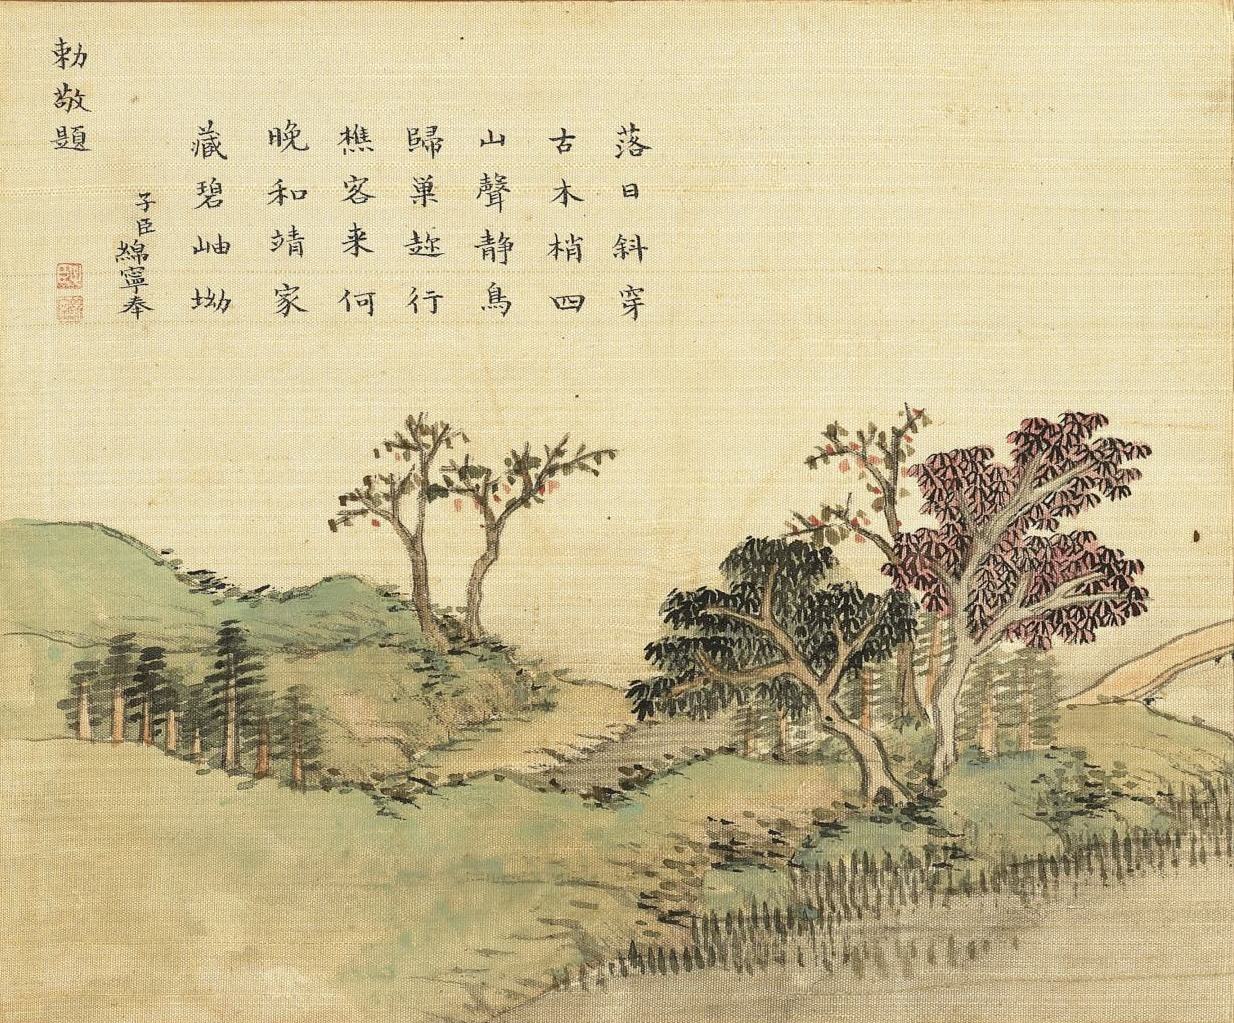 落日斜穿
古木梢四
山聲静鳥
歸巢趂行
樵客来何
晚和靖家
藏碧岫坳
子臣綿寧奉
勅敬題